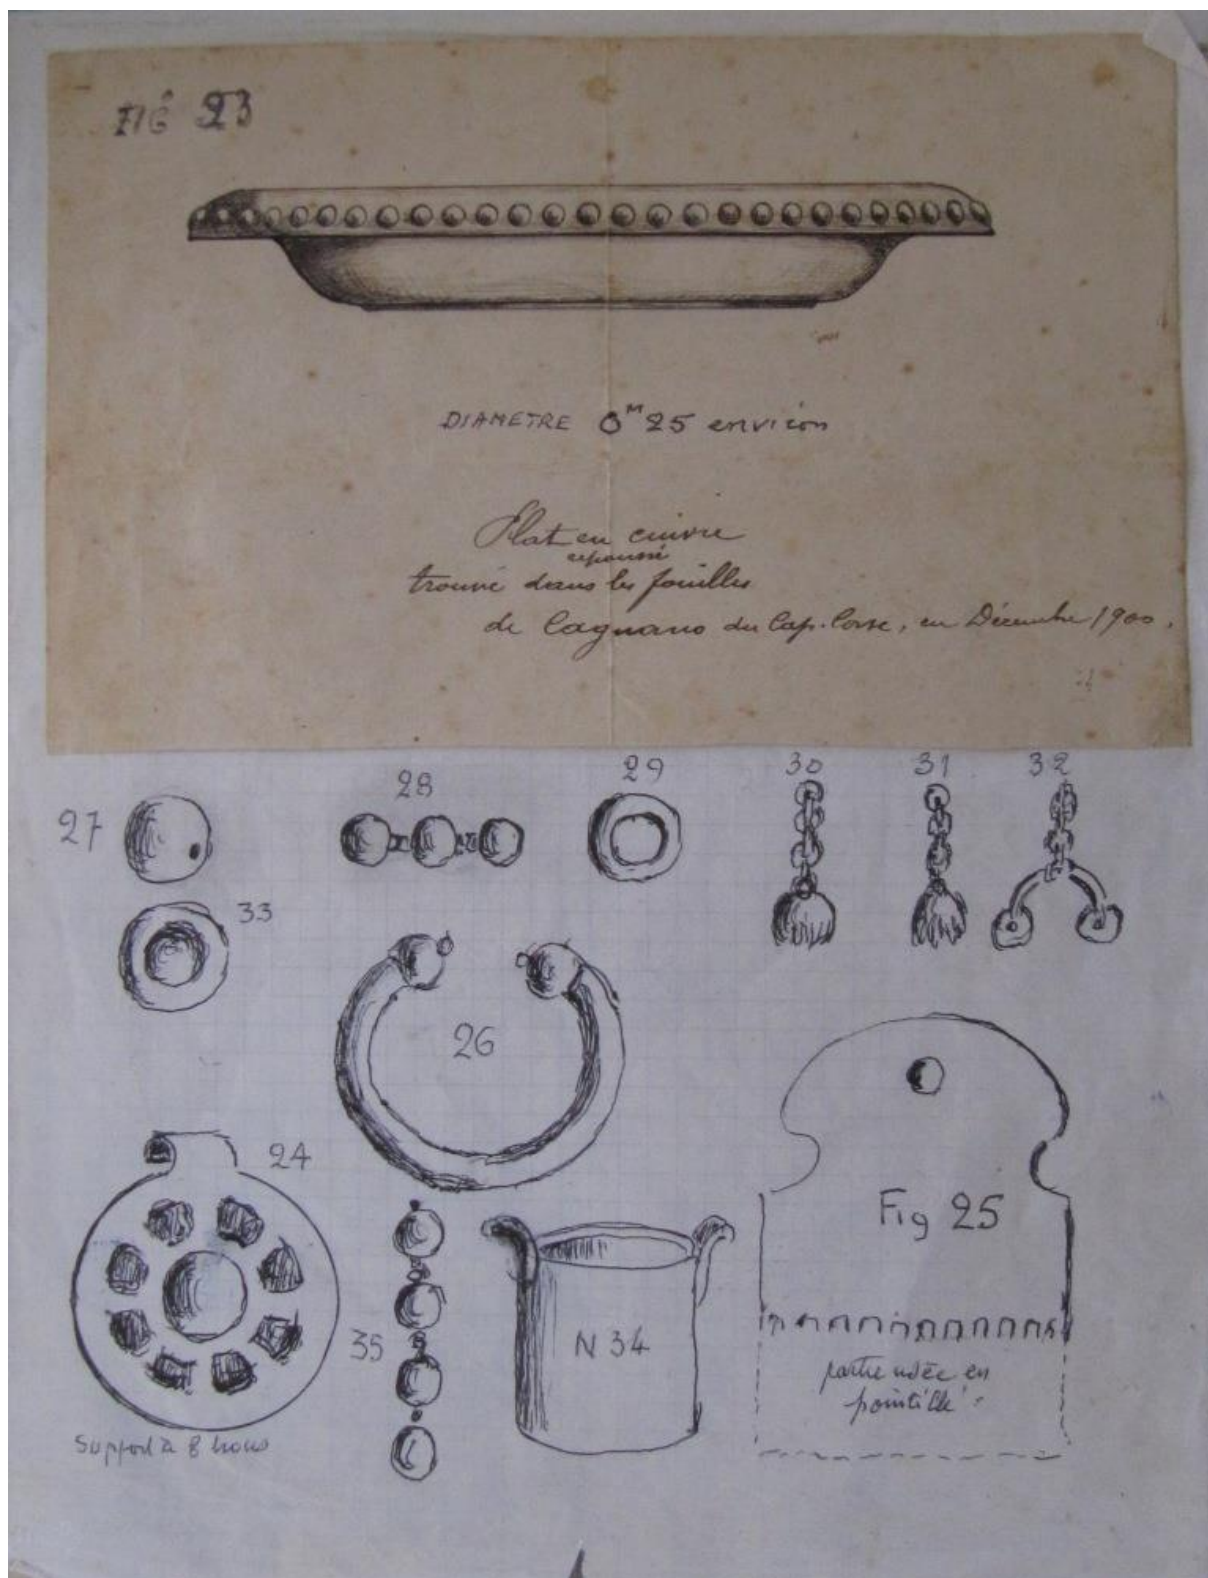 FIG 23
DIAMETRE 0ᴹ25 environ
Plat en cuivre
repoussé
trouvé dans les fouilles
de Cagnano du Cap-Corse, en Décembre 1900.
27
28
29
30
31
32
33
26
24
Fig 25
35
N 34
partie usée en
pointillé
Support à 8 trous